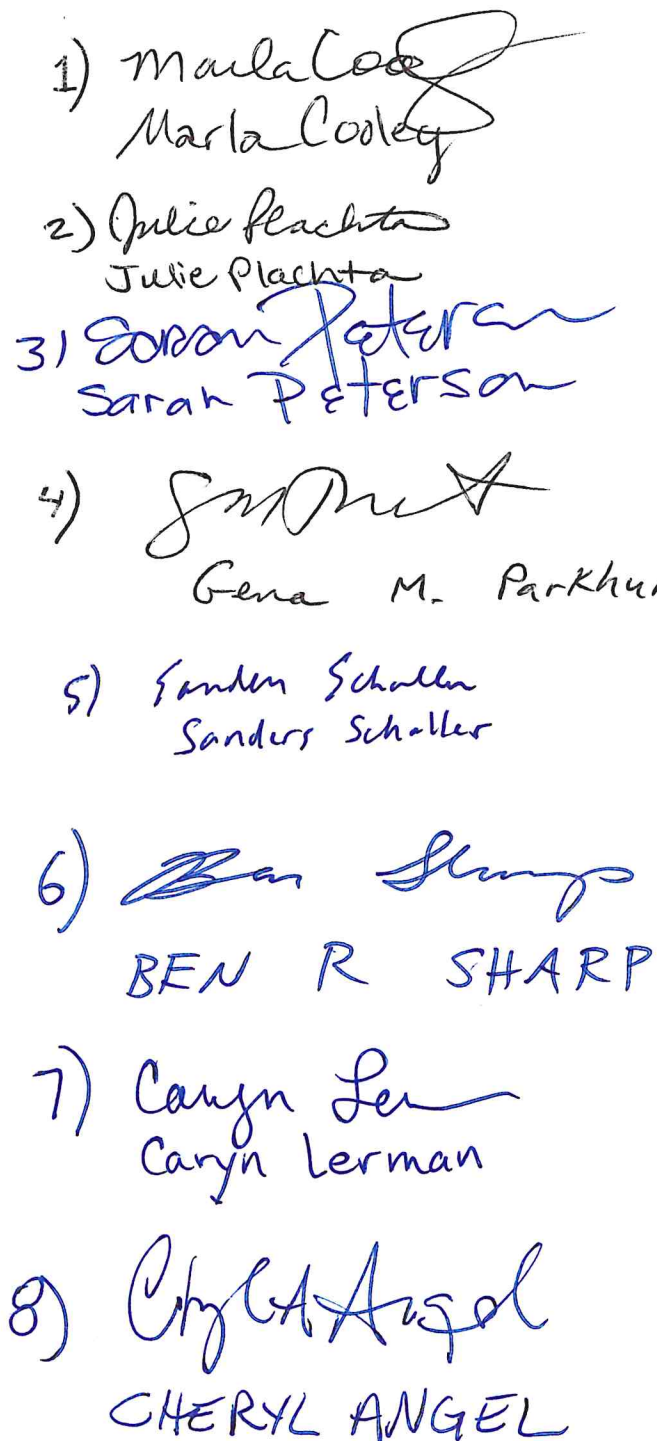 1) Marla Cooley
Marla Cooley
2) Julie Plachta
Julie Plachta
3) Sarah Peterson
Sarah Peterson
4)
Gena M. Parkhur
5) Sanders Schaller
Sanders Schaller
6) Ben Sharp
BEN R SHARP
7) Caryn Ler
Caryn Lerman
8) Cheryl A. Angel
CHERYL ANGEL